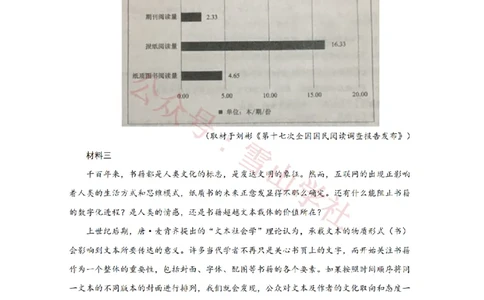 期刊阅读量 2.33
报纸阅读量 16.33
纸质图书阅读量 4.65
0.00 5.00 10.00 15.00 20.00
■ 单位：本/期/份
（取材于刘彬《第十七次全国国民阅读调查报告发布》）
材料三
千百年来，书籍都是人类文化的标志，是发达文明的象征。然而，互联网的出现正影响
着人类的生活方式和思维模式，纸质书的未来正愈发显得不那么确定。还有什么能阻止书籍
的数字化进程？是人类的情感，还是书籍超越文本载体的价值所在？
上世纪后期，唐·麦肯齐提出的“文本社会学”理论认为，承载文本的物质形式（书）
会影响到文本所要传达的意义。许多当代学者不再只是关心书页上的文字，而开始关注书籍
作为一个整体的重要性，包括封面、字体、配图等书籍的各个要素。如果按照时间顺序将同
一文本的不同版本的封面进行排列，我们就会发现，公众对文本及作者的文化取向和态度一
公众号：雪山学社